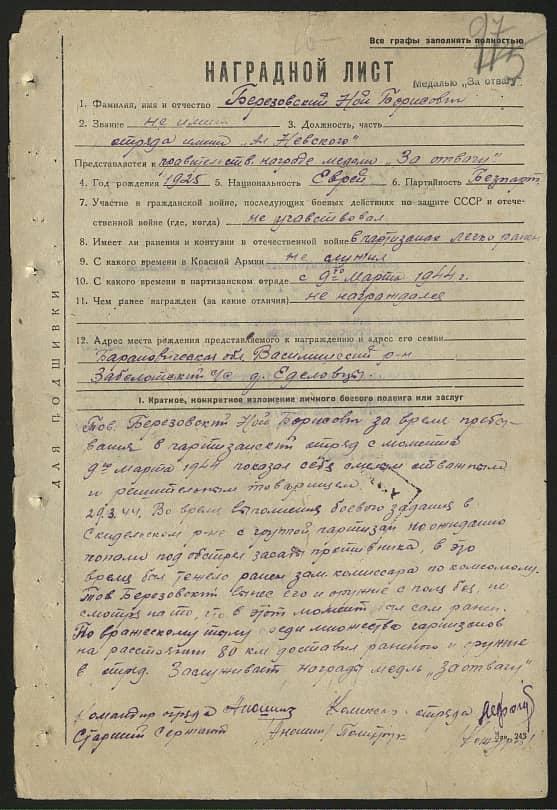 Все графы заполнять полностью
НАГРАДНОЙ ЛИСТ
Медалью „За отвагу"
1. Фамилия, имя и отчество Березовский Ной Борисович
2. Звание не имеет 3. Должность, часть
отряда имени „Ал Невского"
Представляется к правительств. награде медали „За отвагу"
4. Год рождения 1925 5. Национальность Еврей 6. Партийность Безпарт
7. Участие в гражданской войне, последующих боевых действиях по защите СССР и отече-
ственной войне (где, когда) не учавствовал
8. Имеет ли ранения и контузии в отечественной войне в партизанах легко ранен
9. С какого времени в Красной Армии не служил
10. С какого времени в партизанском отряде с 9го марта 1944 г.
11. Чем ранее награжден (за какие отличия) не награждался
12. Адрес места рождения представляемого к награждению и адрес его семьи
Барановическая обл Василишский р-н
Заболотский с/с д.
ДЛЯ ПОДШИВКИ
I. Краткое, конкретное изложение личного боевого подвига или заслуг
Тов. Березовский Ной Борисович за время пребы-
вания в партизанский отряд с момента
9го марта 1944 показал себя смелым отважным
и решительным товарищем.
29.3.44. Во время выполнения боевого задания в
Скидельском р-не с группой партизан неожиданно
попали под обстрел засады противника, в это
время был тежело ранен зам. комиссара по комсомолу.
Тов Березовский вынес его и оружие с поля боя, не
смотря на то, что в этот момент был сам ранен.
По вражескому тылу среди множества гарнизонов
на расстоянии 80 км доставил раненого и оружие
в отряд. Заслуживает награды медаль „За отвагу"
Командир отряда Комиссар отряда
Старший Сержант Политрук